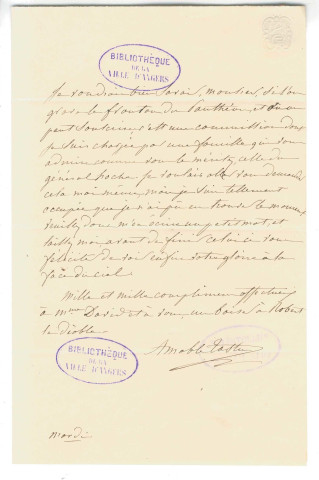 BIBLIOTHÈQUE
DE LA
VILLE D'ANGERS
Je voudrais bien savoir, monsieur, si l'on
grave le fronton du Panthéon, et où on
peut souscrire, c'est une commission dont
je suis chargée par une famille qui vous
admire comme vous le méritez, celle du
général hoche. Je voulais aller vous demander
cela moi même, mais je suis tellement
occupée que je n'ai pu en trouver le moment
veuillez donc m'en écrire un petit mot, et
laissez moi avant de finir celui ci vous
féliciter de voir enfin votre gloire à la
face du ciel.
Mille et mille compliments affectueux
à Mme David et à vous, un baiser à Robert
le diable.
Amable Tastu
BIBLIOTHÈQUE
DE LA
VILLE D'ANGERS
mardi